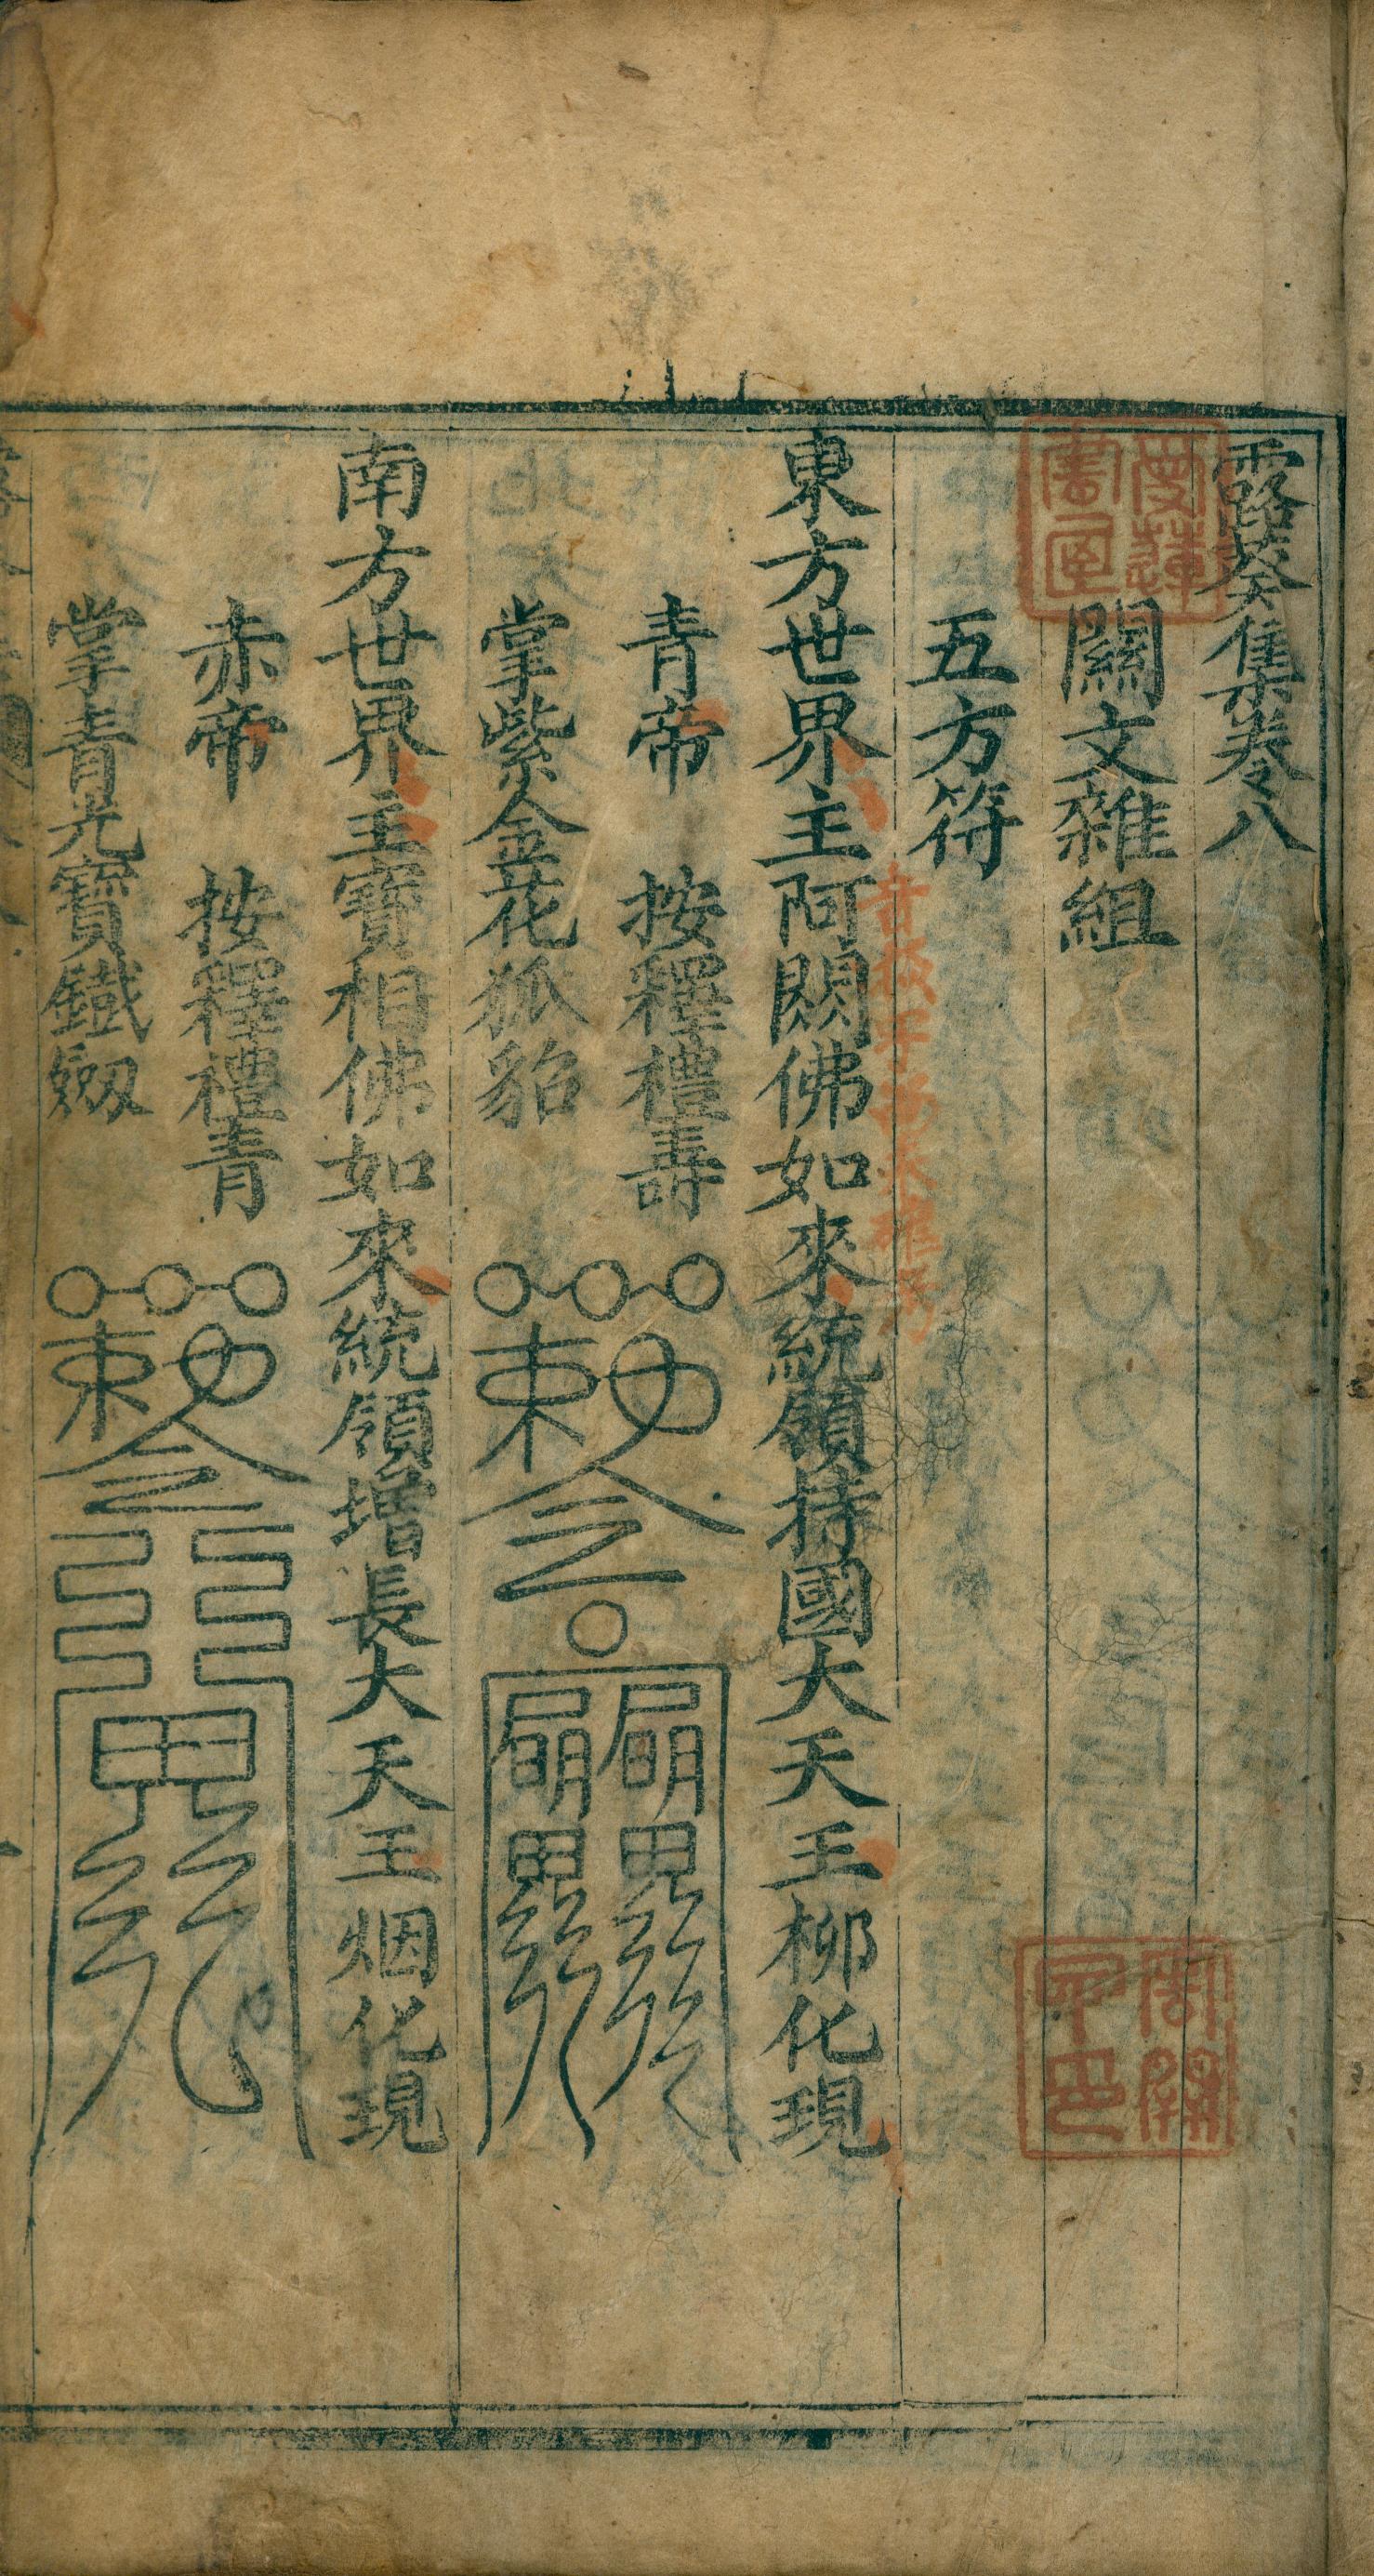 露葵集卷八
關文雜組
五方符
東方世界主阿閦佛如來統領持國大天王柳化現
青帝　按釋禮壽
掌紫金花狐貂
南方世界主寶相佛如來統領增長大天王烟化現
赤帝　按釋禮青
掌青光寶鐵劔